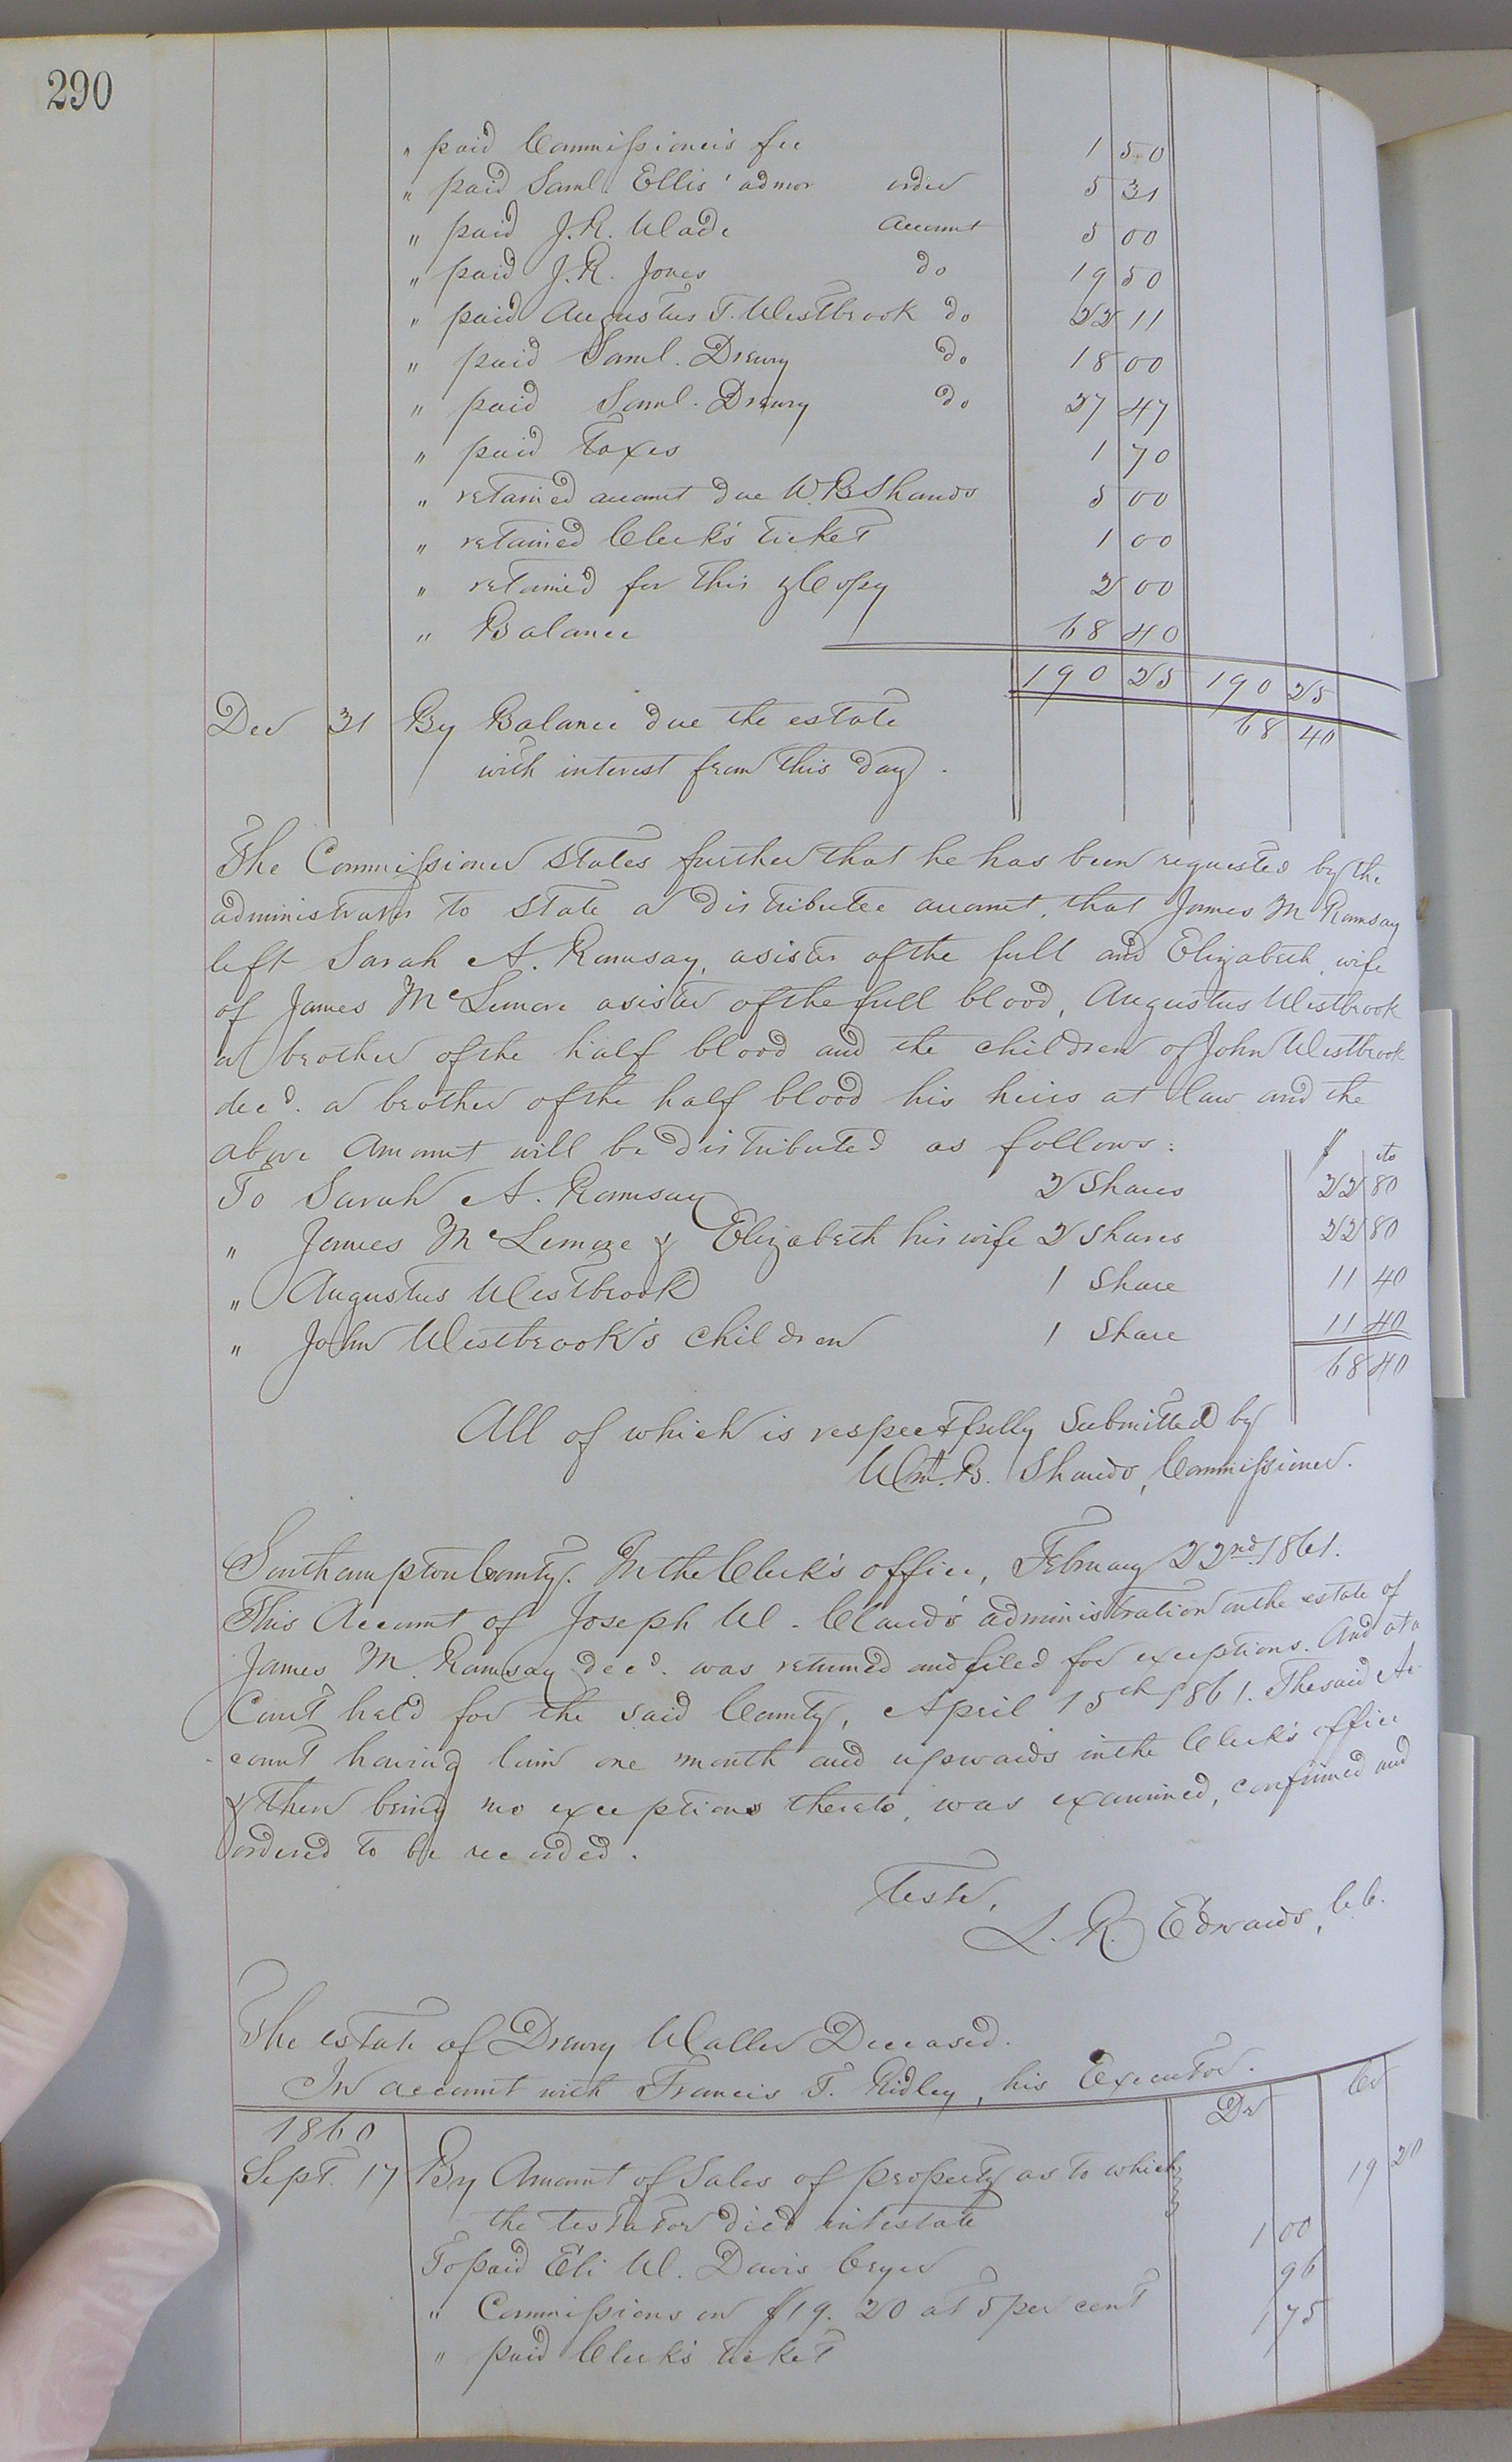 290
" paid Commissioner's fee 1 50
" paid Saml. Ellis' admor order 5 31
" paid J. R. Wade Account 5 00
" paid J. R. Jones do 19 50
" paid Augustus T. Westbrook do 22 11
" paid Saml. Drewry do 18 00
" paid Saml. Drewry do 27 47
" paid Taxes 1 70
" retained account due W. B Shands 5 00
" retained Clerk's ticket 1 00
" retained for this & Copy 2 00
" Balance 68 40
190 25 190 25
Dec 31 By Balance due the estate 68 40
with interest from this day.
The Commissioner states further that he has been requested by the
administrator to state a distributee account, that James M Ramsay
left Sarah A. Ramsay, a sister of the full and Elizabeth, wife
of James McLemore a sister of the full blood, Augustus Westbrook
a brother of the half blood and the children of John Westbrook
decd. a brother of the half blood his heirs at law and the
above amount will be distributed as follows: $ cts
To Sarah A. Ramsay 2 Shares 22 80
" James McLemore & Elizabeth his wife 2 Shares 22 80
" Augustus Westbrook 1 Share 11 40
" John Westbrook's children 1 Share 11 40
68 40
All of which is respectfully Submitted by
Wm. B. Shands, Commissioner.
Southampton County. In the Clerk's office, February 22nd. 1861.
This Account of Joseph W. Claud's administration on the estate of
James M. Ramsay decd. was returned and filed for exceptions. And at a
Court held for the said County, April 15th 1861. The said Ac-
count having lain one month and upwards in the Clerk's office
& there being no exceptions thereto, was examined, confirmed and
ordered to be recorded.
Teste,
L. R. Edwards, C.C.
The estate of Drewry Waller Deceased.
In account with Francis T. Ridley, his Executor.
1860 Dr Cr
Sept. 17 By Amount of Sales of property as to which 19 20
the testator died intestate
To paid Eli W. Davis Cryer 1 00
" Commissions on $19.20 at 5 per cent 96
" paid Clerk's ticket 1 75